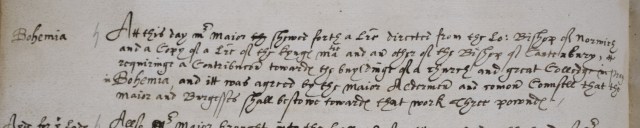 Bohemia
Att this day mr Maior the shewed forth a Lre directed from the Lo: Bishop of Norwich
and a Copy of a Lre of the kyngs matie and an other of the Bishop of Cantorbury,
requiringe a Contribucon towards the buyldinge of a church and great Colledge in
in Bohemia, and itt was agreed by the Maior Aldermen and comon Counsell that the
Maior and Burgesses shall bestowe towards that work Three pownds
Also mr Maior brought into the